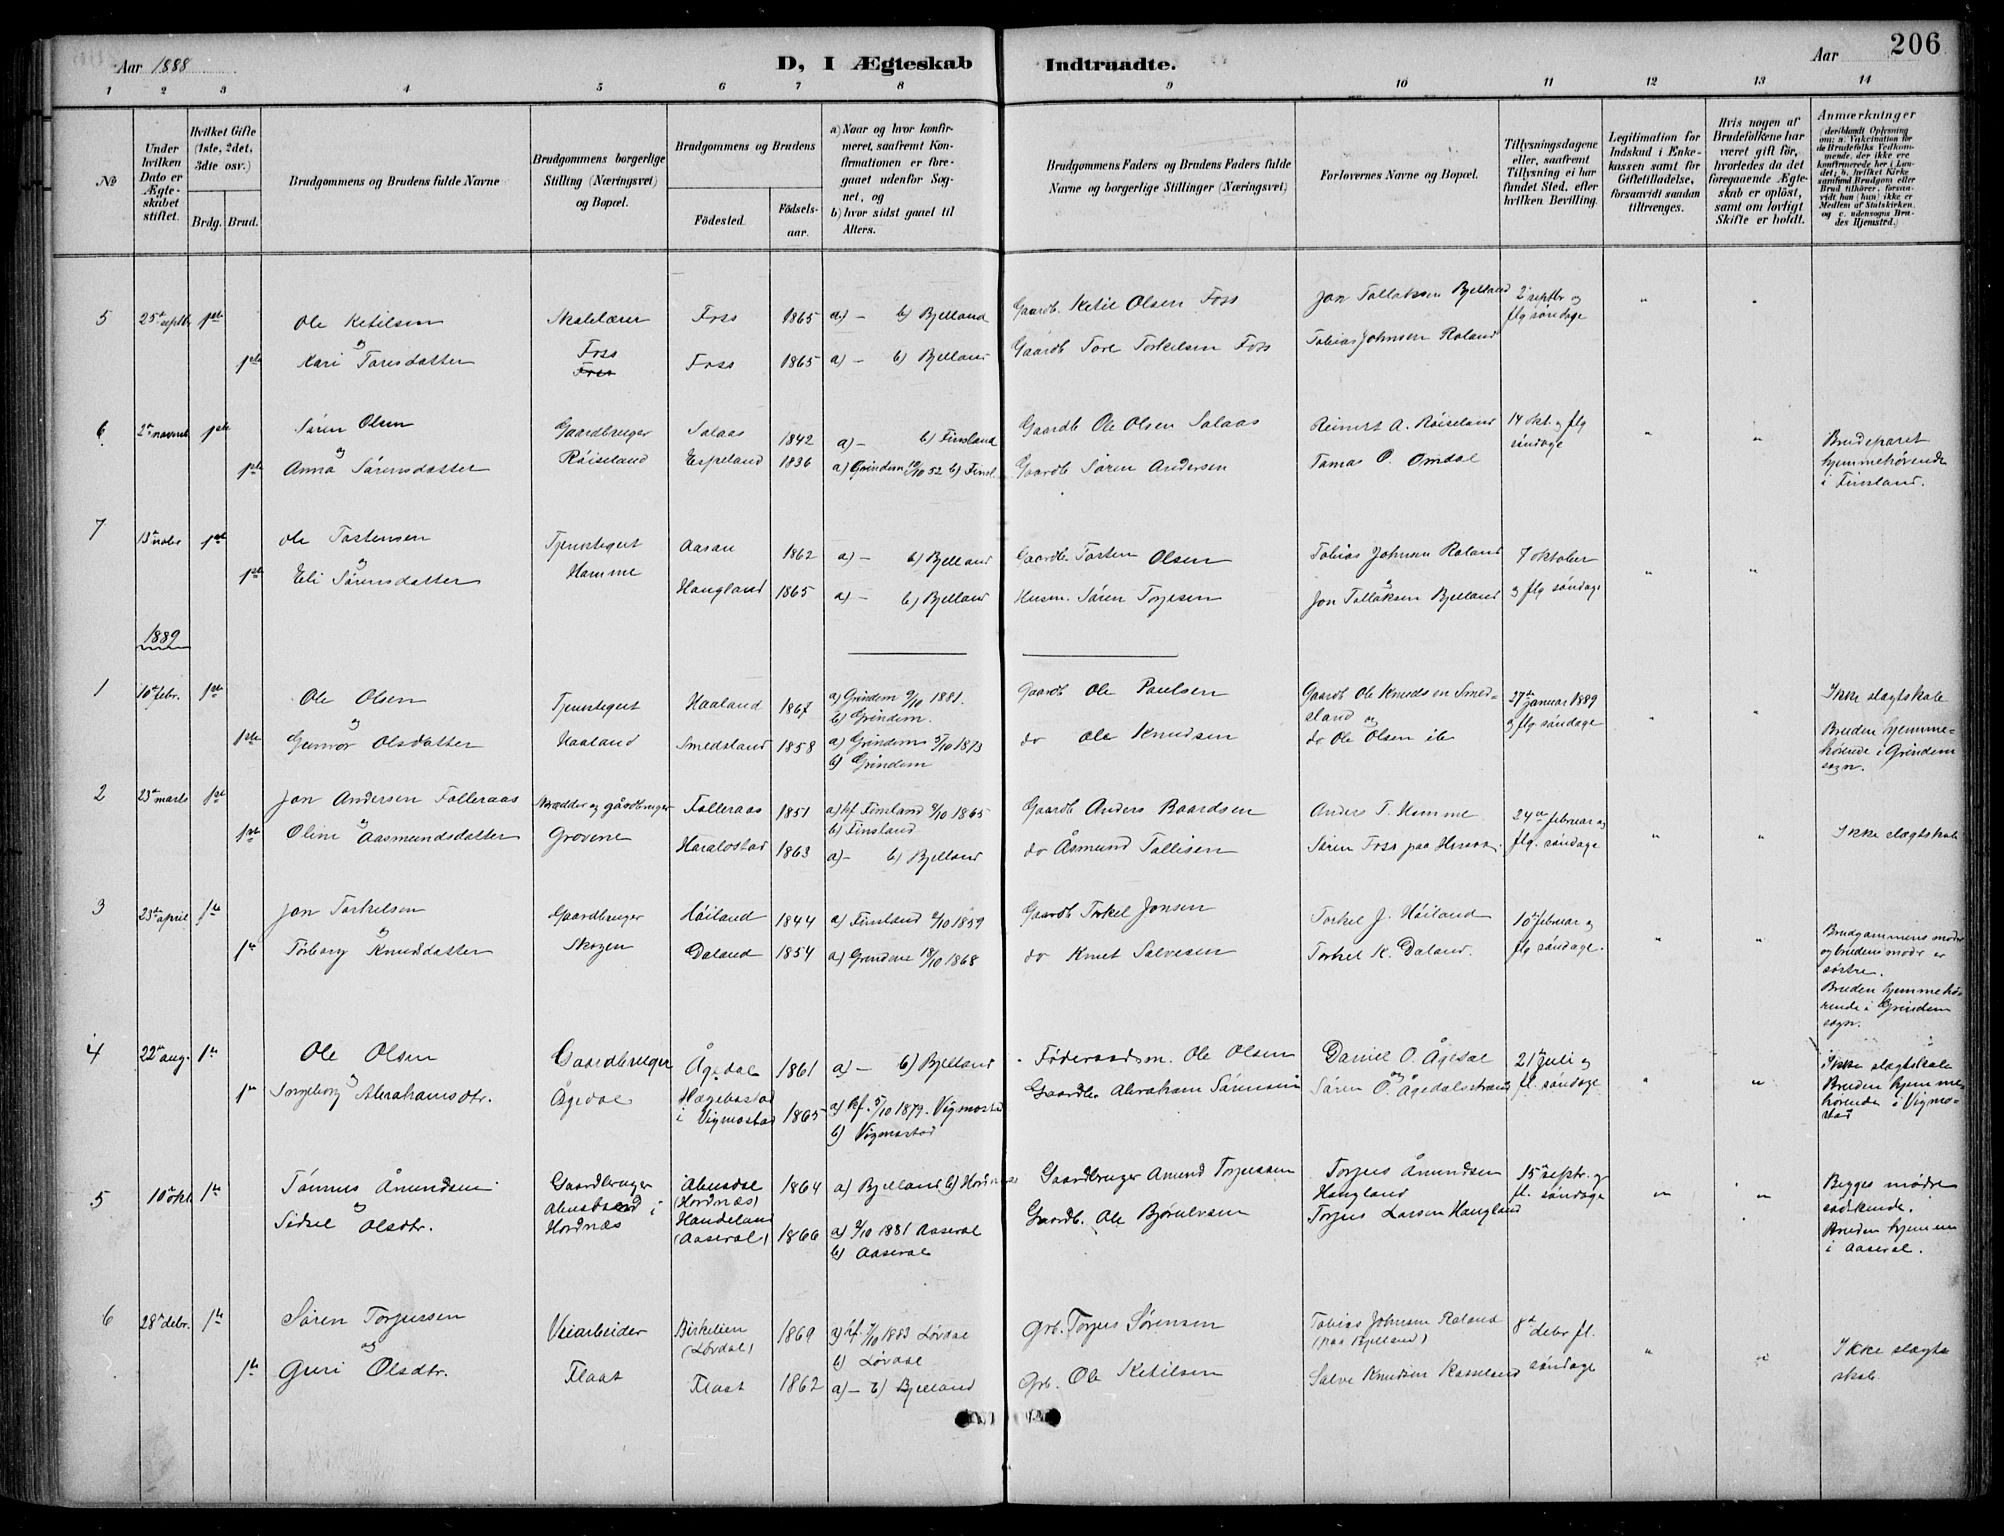 Aar 1888
D, I Ægteskab Indtraadte.
Aar
206
1 2 3 4 5 6 7 8 9 10 11 12 13 14
№
Under hvilken Dato er Ægteskabet stiftet.
Hvilket Gifte (1ste, 2det, 3die osv.)
Brdg. Brud.
Brudgommens og Brudens fulde Navne
Brudgommens borgerlige Stilling (Næringsvei) og Bopæl.
Brudgommens og Brudens
Fødested.
Fødselsaar.
a) Naar og hvor konfirmeret, saafremt Konfirmationen er foregaaet udenfor Sognet, og
b) hvor sidst gaaet til Alters.
Brudgommens Faders og Brudens Faders fulde Navne og borgerlige Stillinger (Næringsvei)
Forlovernes Navne og Bopæl.
Tillysningsdagene eller, saafremt Tillysning ei har fundet Sted, efter hvilken Bevilling.
Legitimation for Indskud i Enkekassen samt for Giftetilladelse, forsaavidt saadan tiltrænges.
Hvis nogen af Brudefolkene har været gift før, hvorledes da det foregaaende Ægteskab er opløst, samt om lovligt Skifte er holdt.
Anmærkninger
(deriblandt Oplysning om: a. Vakcination for de Brudefolks Vedkommende, der ikke ere konfirmerede her i Landet; b. hvilket Kirkesamfund Brudgom eller Brud tilhører, forsaavidt han (hun) ikke er Medlem af Statskirken, og c. udensogns Brudes Hjemsted.)
5 25de septbr 1ste Ole Ketilsen Skolelærer Foss 1865 a) - b) Bjelland Gaardb. Ketil Olsen Foss Jon Tallaksen Bjelland 2 septbr og flg søndage " "
og Foss
1ste Kari Toresdatter Foss Foss 1865 a) - b) Bjelland Gaardb Tore Torkelsen Foss Tobias Johnsen Roland
6 2den novbr 1ste Søren Olsen Gaardbruger Salaas 1842 a) - b) Finsland Gaardb Ole Olsen Salaas Reinert A. Røiseland 14 okt. og flg søndage " " Brudeparet hjemmehørende i Finsland.
og
1ste Anna Sørensdatter Røiseland Espeland 1836 a) Grindem 10/10 52 b) Finsl. Gaardb Søren Andersen Tomas O. Omdal
7 13de nobr 1ste Ole Tostensen Tjenestegut Aasen 1862 a) - b) Bjelland Gaardb. Tosten Olsen Tobias Johnsen Roland 7 oktober
og og
1ste Eli Sørensdatter Homme Haugland 1865 a) - b) Bjelland Husm. Søren Torjesen Jon Tallaksen Bjelland og flg søndage " "
1889
1 10de febr. 1ste Ole Olsen Tjenestegut Haaland 1867 a) Grindem 9/10 1881. b) Grindem. Gaardb Ole Paulsen Gaardb Ole Knudsen Smedsland og 27de januar 1889 og flg søndage " " Ikke slægtskab
og
1ste Gunvor Olsdatter Haaland Smedsland 1858 a) Grindem 5/10 1873 b) Grindem do Ole Knudsen do Ole Olsen ib Bruden hjemmehørende i Grindem sogn.
2 23de marts 1ste Jon Andersen Folleraas Skrædder og gårdbruger Folleraas 1851 a) kf Finsland 9/10 1865 b) Finsland Gaardb Anders Baardsen Anders T. Homme 24de februar og flg. søndage " " Ikke slægtskab
og
1ste Oline Aasmundsdatter Grovene Haralostad 1863 a) - b) Bjelland do Åsmund Tallisen Søren Foss paa
3 23de april 1ste Jon Torkelsen Gaardbruger Høiland 1844 a) Finsland 9/10 1859 Gaardb Torkel Jonsen Torkel J. Høiland 10de februar og flg søndage. " " Brudgommens moder og brudens moder er søstre. Bruden hjemmehørende i Grindem sogn.
og
1ste Torborg Knudsdatter Skogen Daland 1854 a) Grindem 18/10 1868 do Knut Salvesen Torkel K. Daland.
4 22de aug. 1ste Ole Olsen Gaardbruger Ågedal 1861 a) - b) Bjelland Føderaadsm. Ole Olsen Daniel O. Ågedal 21de Juli og fl. søndage " " ikke slægtskab Bruden hjemmehørende i Vigmostad
og og
1ste Ingeborg Abrahamsdtr. Ågedal Hægebostad i Vigmostad 1865 a) kf. 5/10 1879. Vigmostad b) Vigmostad Gaardbr Abraham Sørensen Søren O Ågedalstrand
5 10de okt 1ste Tønnes Åmundsen Gaardbruger Abusdal (Hordnæs) 1864 a) Bjelland b) Hordnæs Gaardbruger Amund Torjussen Torjus Åmundsen Haugland 15de septr. og fl. søndage " " Begges mødre sødskende. Bruden hjemme i Aaseral.
og i Hordnæs
Sidsel Olsdtr. Handeland (Aaseral) 1866 a) 2/10 1881 Aaseral b) Aaseral Gaardb. Ole Bjørnulvsen Torjus Larsen Haugland
6 28de debr. 1ste Søren Torjussen Veiarbeider Birkelien (Løvdal) 1869 a) kf. 7/10 1883 Løvdal b) Løvdal Grb. Torjus Sørensen Tobias Johnsen Roland (paa Bjelland) 8de debr fl. søndage " " Ikke slægtskab
og
1ste Guri Olsdtr. Flaat Flaat 1862 a) - b) Bjelland Grb. Ole Ketilsen Salve Knudsen Rosseland